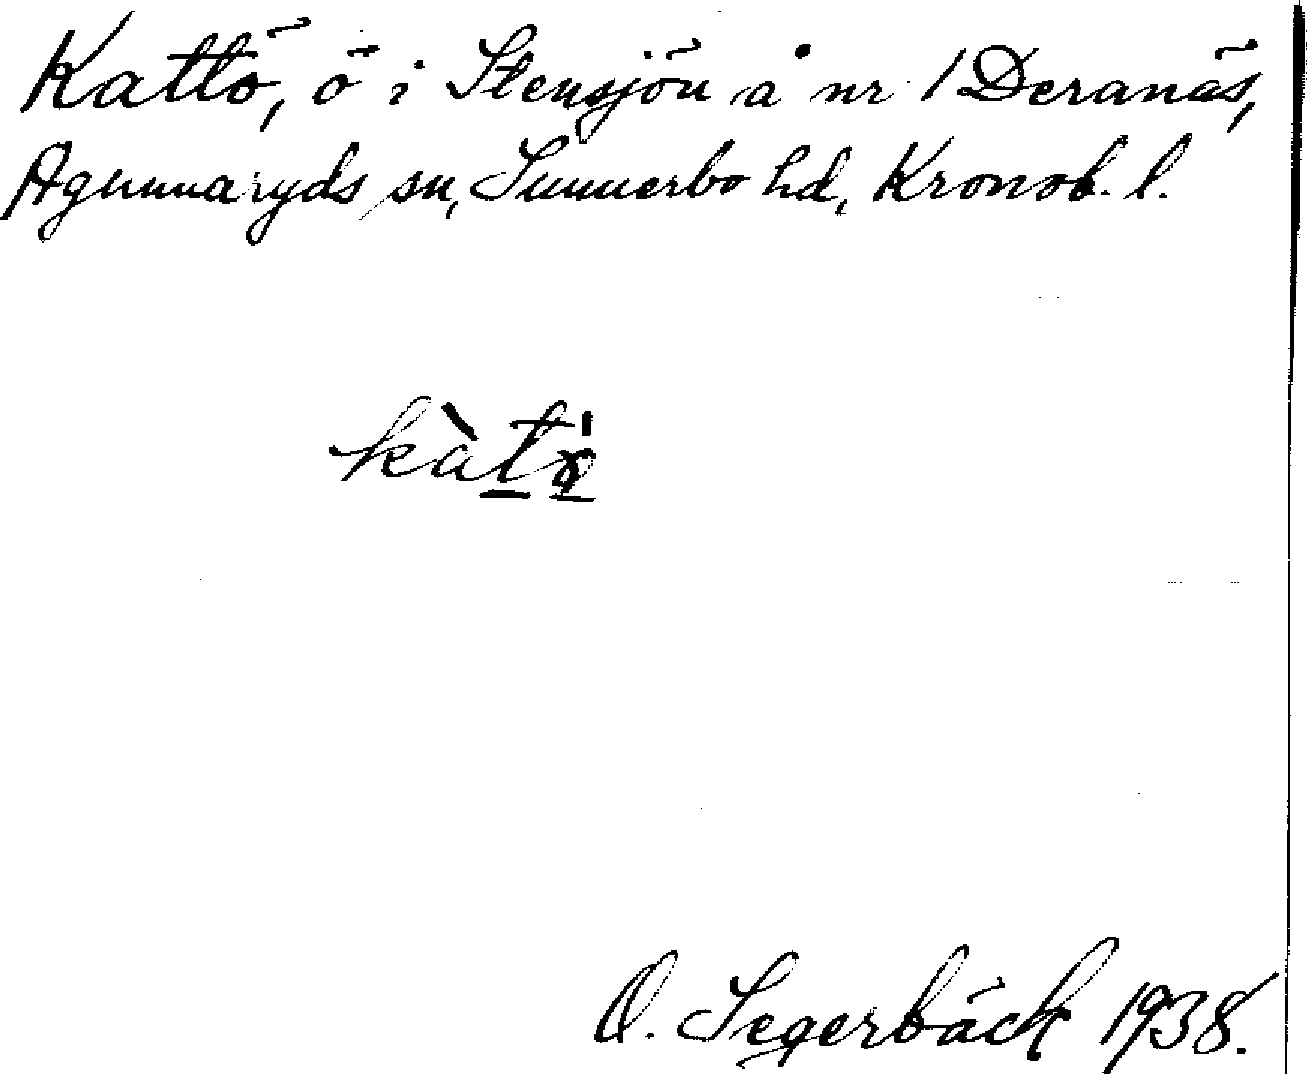 Kattö, ö i Stensjön å nr 1 Deranäs,
Agunnaryds sn, Sunnerbo hd, Kronob. l.
kàtö̀
O. Segerbäck 1938.